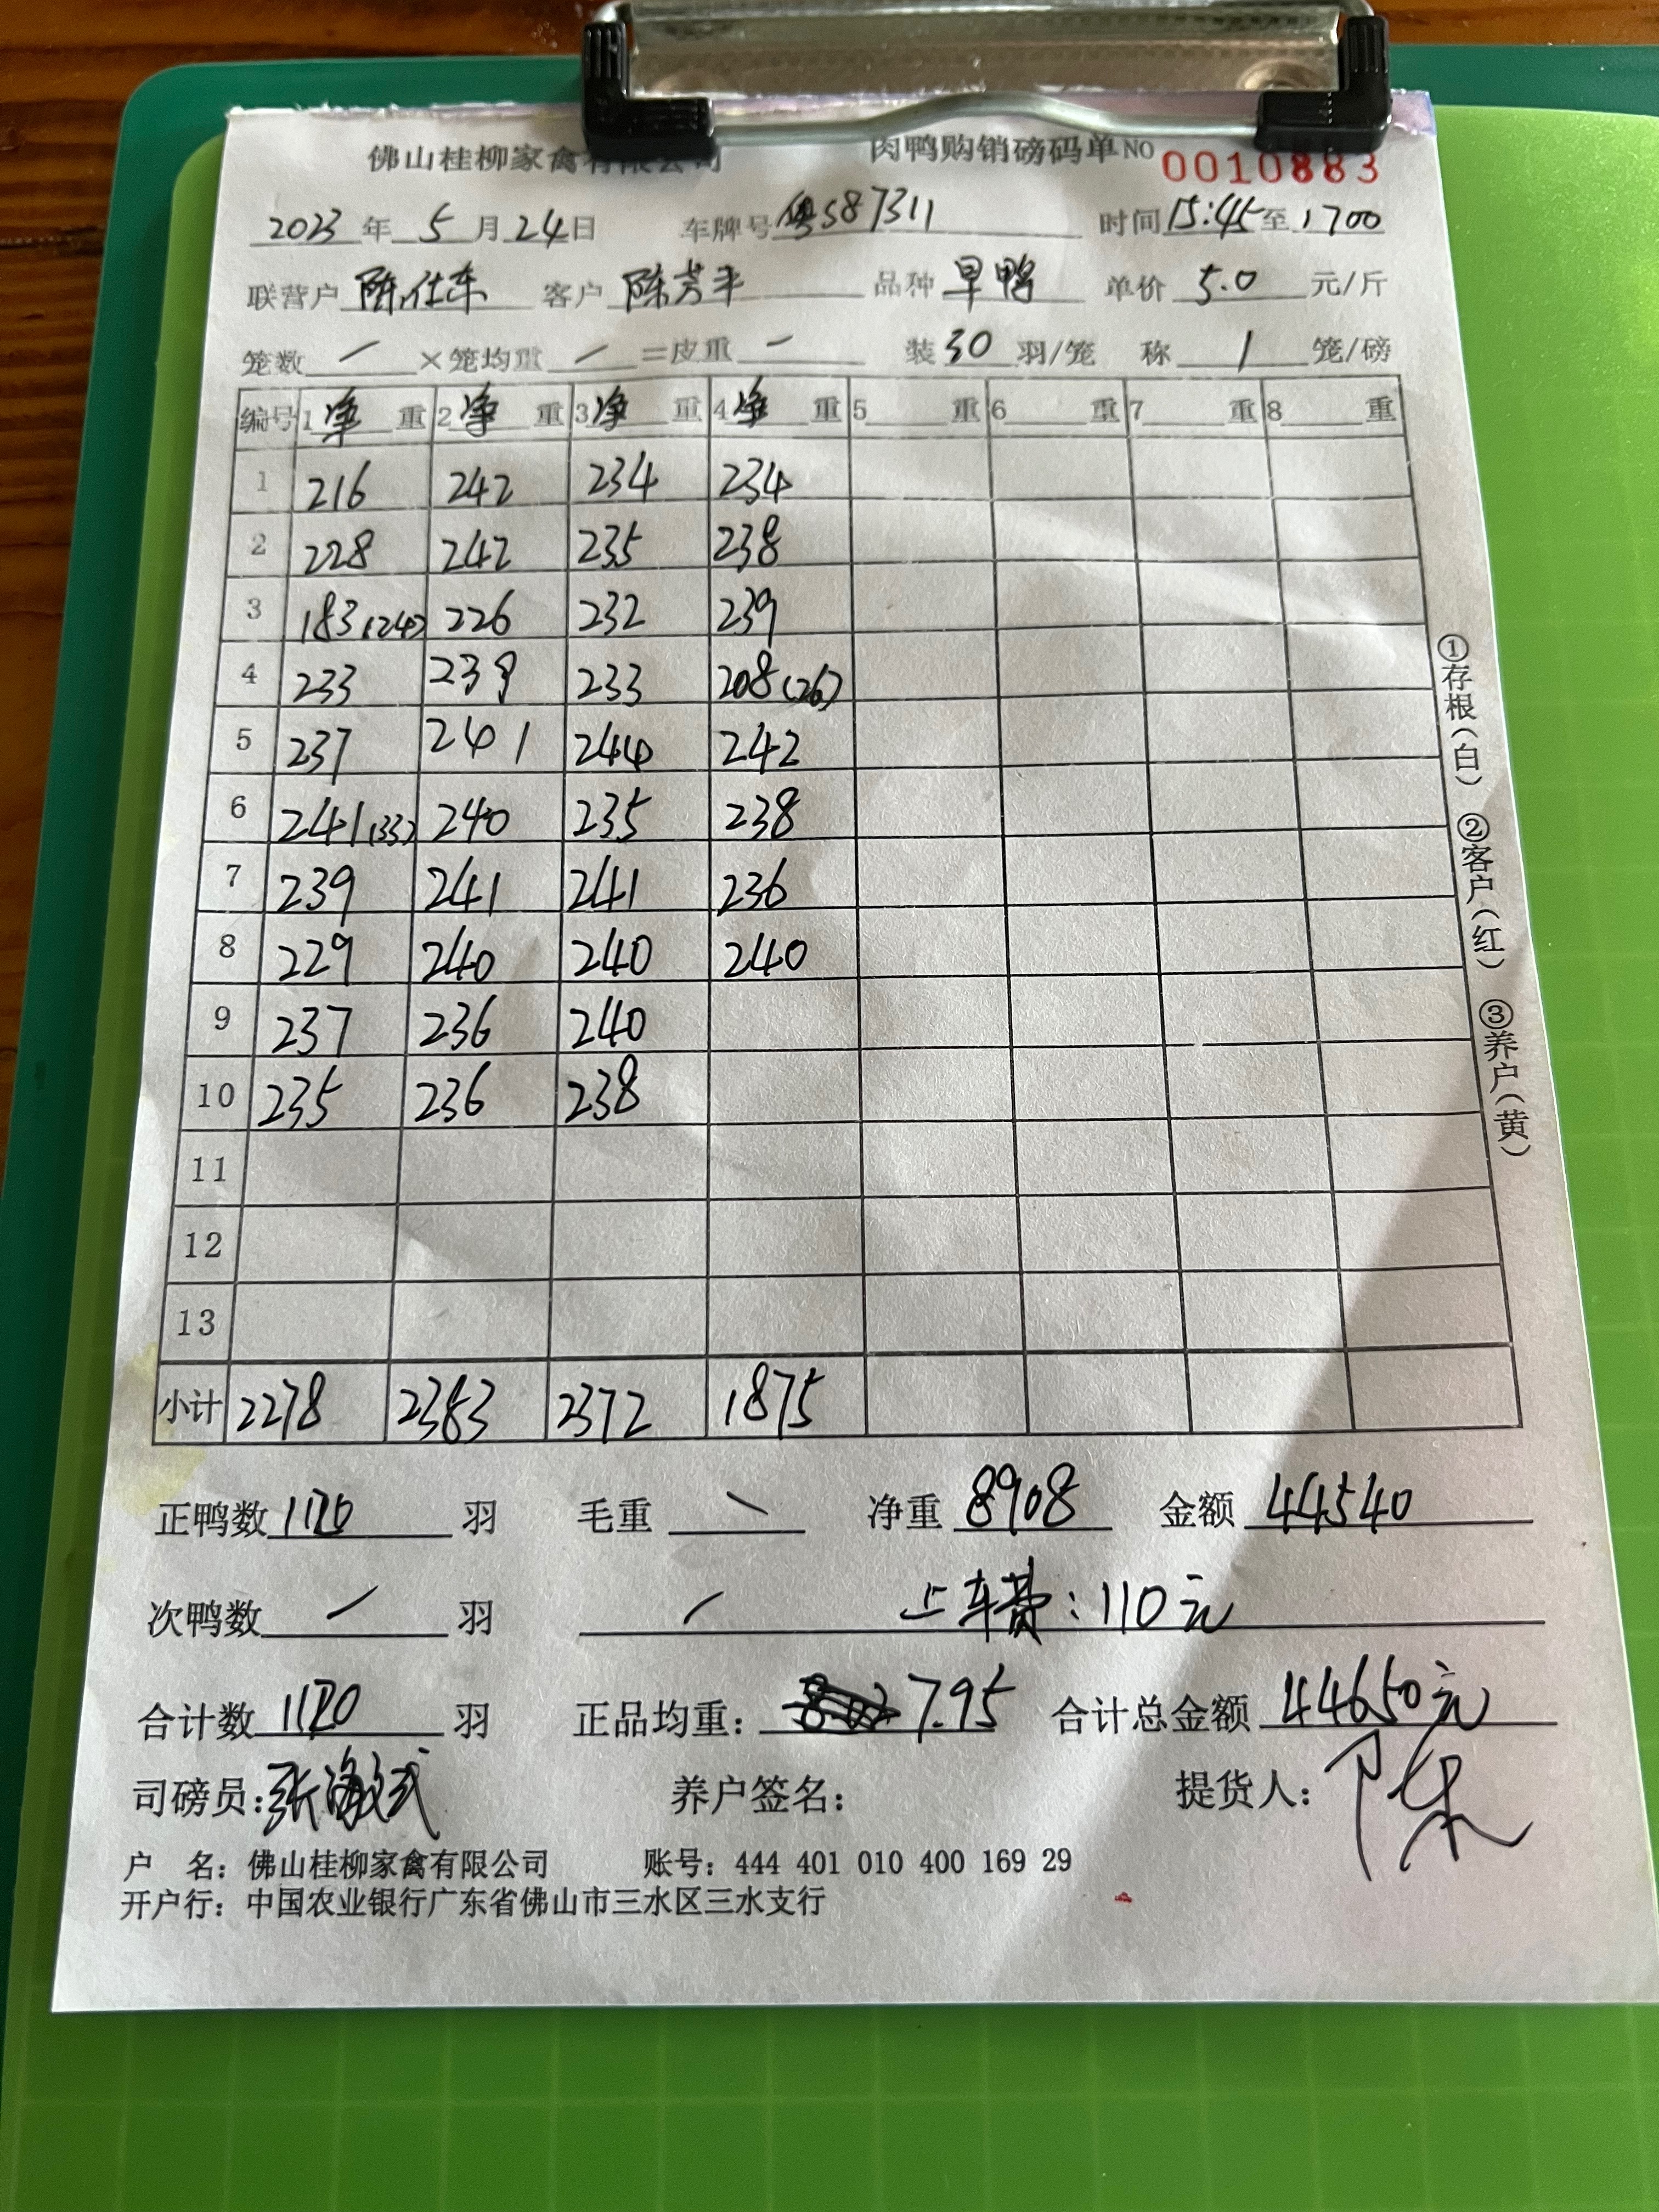 佛山桂柳家禽有限公司 肉鸭购销磅码单 NO 0010883
2023年 5月24日 车牌号 粤S87311 时间15:45至1700
联营户 陈仕东 客户 陈芳平 品种 旱鸭 单价 5.0 元/斤
笼数 / ×笼均重 / =皮重 - 装30羽/笼 称 1 笼/磅
编号 1净重 2净重 3净重 4净重 5 重 6 重 7 重 8 重
1 216 242 234 234
2 228 242 235 238
3 183(24) 226 232 239
4 233 239 233 208(26)
5 237 241 244 242
6 241(33) 240 235 238
7 239 241 241 236
8 229 240 240 240
9 237 236 240
10 235 236 238
11
12
13
小计 2278 2383 2372 1875
正鸭数 1170 羽 毛重 \ 净重 8908 金额 44540
次鸭数 / 羽 / 上车费:110元
合计数 1120 羽 正品均重: 7.95 合计总金额 44650元
司磅员: 养户签名: 提货人:
户 名: 佛山桂柳家禽有限公司 账号: 444 401 010 400 169 29
开户行: 中国农业银行广东省佛山市三水区三水支行
①存根(白) ②客户(红) ③养户(黄)